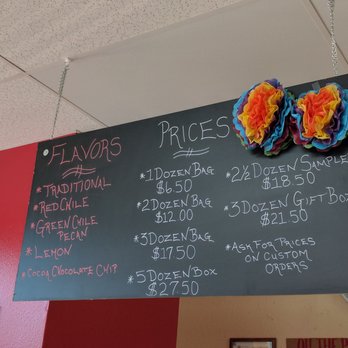 FLAVORS
*TRADITIONAL
*RED CHILE
*GREEN CHILE
PECAN
*LEMON
*COCOA CHOCOLATE CHIP
PRICES
*1 DOZEN BAG
$6.50
*2 DOZEN BAG
$12.00
*3 DOZEN BAG
$17.50
*5 DOZEN BOX
$27.50
*2½ DOZEN SAMPLE
$18.50
*3 DOZEN GIFT BOX
$21.50
*ASK FOR PRICES
ON CUSTOM
ORDERS